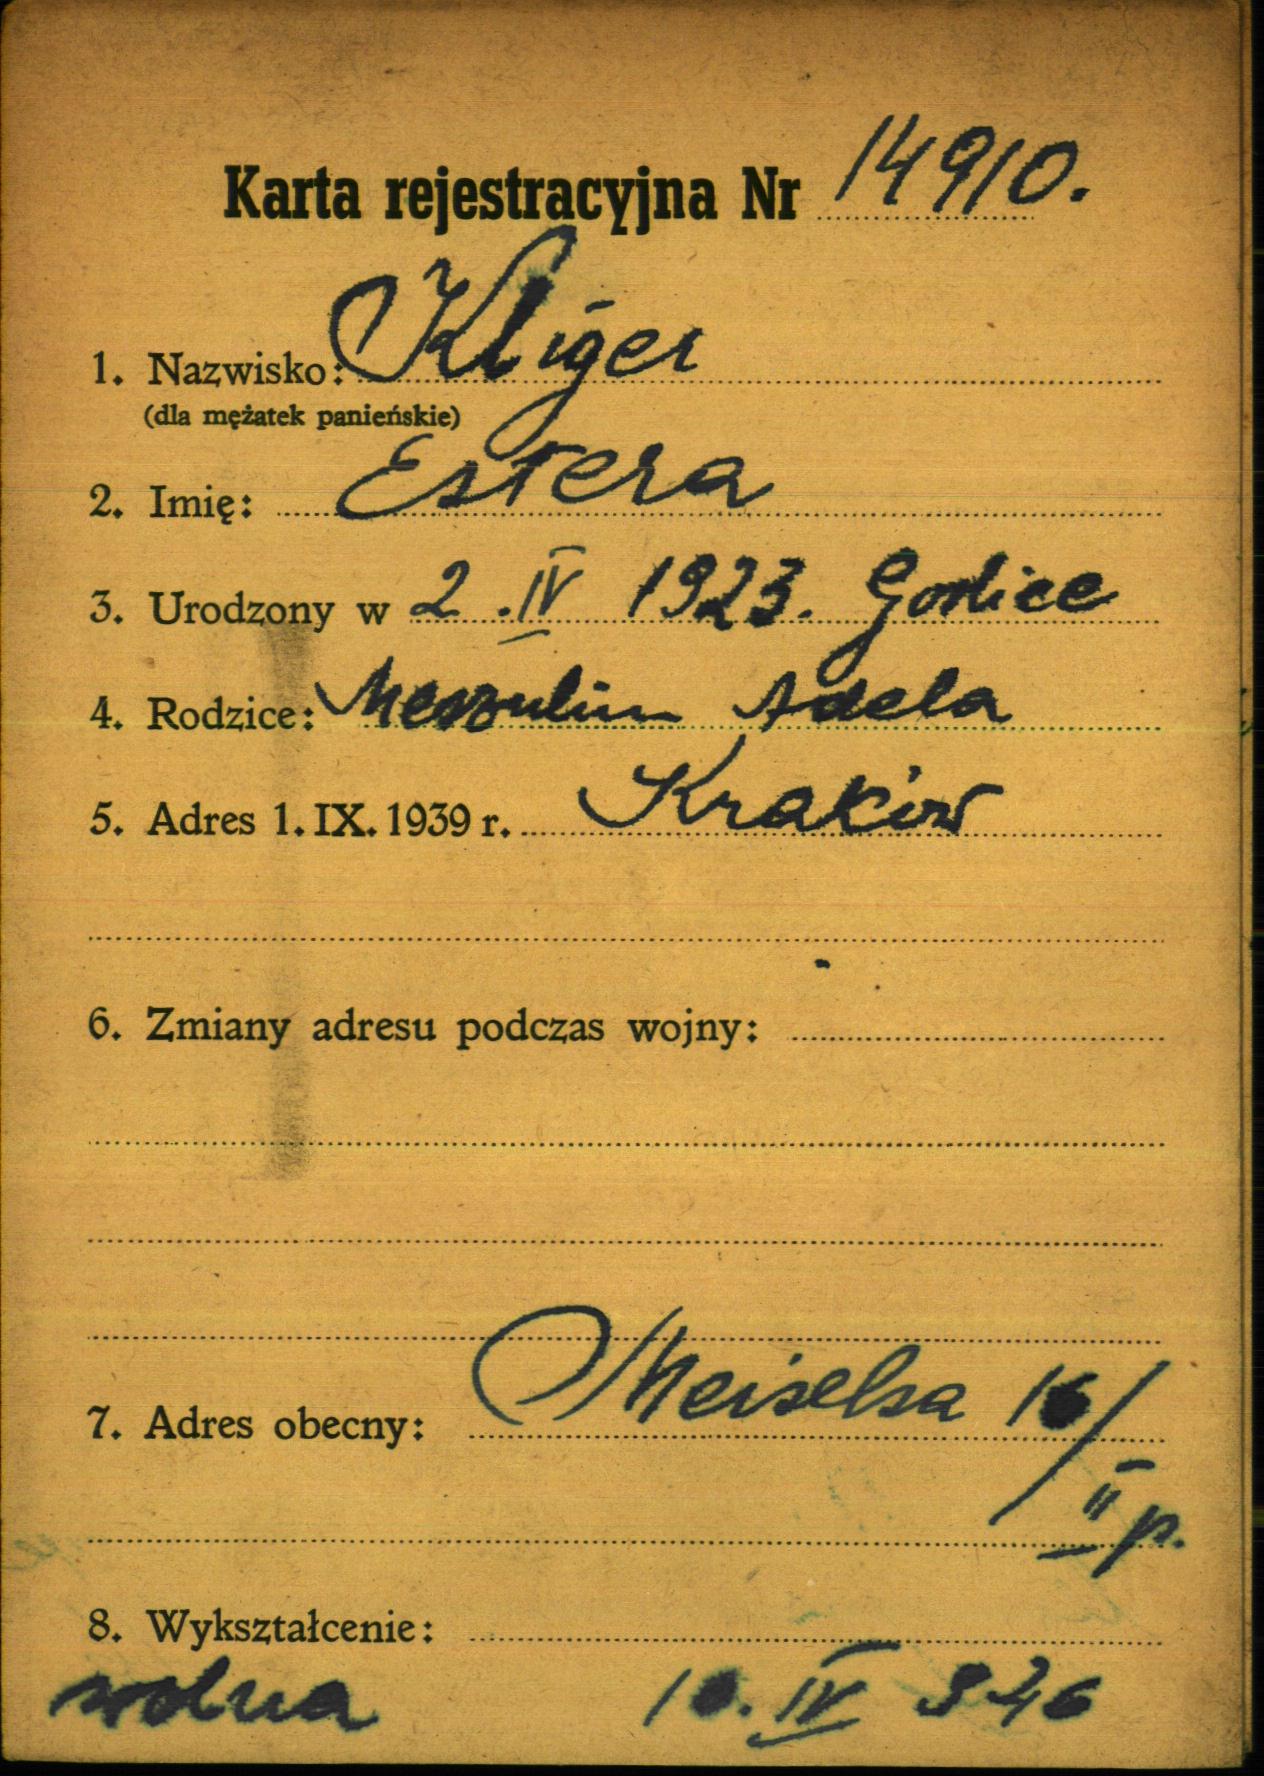 Karta rejestracyjna Nr 14910.
1. Nazwisko: Kliger
(dla mężatek panieńskie)
2. Imię: Estera
3. Urodzony w 2.IV 1923. Gorlice
4. Rodzice: Meszulim Adela
5. Adres 1. IX. 1939 r. Kraków
6. Zmiany adresu podczas wojny:
7. Adres obecny: Meiselsa 16/
II p.
8. Wykształcenie:
wolna IV 946